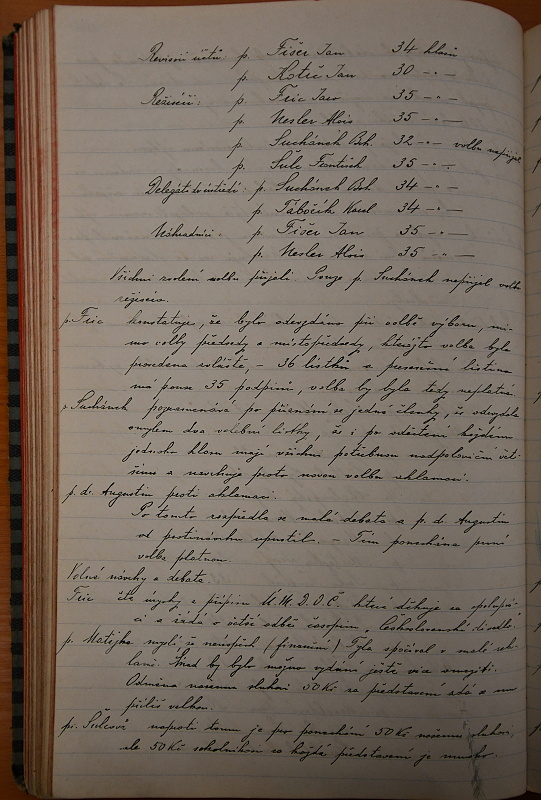 Revisoři účtů: p. Fišer Jan 34 hlasů
p. Kotrč Jan 30 -"-
Režiséři: p. Fric Jan 35 -"-
p. Nesler Alois 35 -"-
p. Suchánek Boh. 32 -"- volbu nepřijal
p. Šulc František 35 -"-
Delegáti do p. Suchánek Boh. 34 -"-
p. Tábořík Karel 34 -"-
Náhradníci: p. Fišer Jan 35 -"-
p. Nesler Alois 35 -"-
Všichni zvolení volbu přijali. Pouze p. Suchánek nepřijal volbu
režiséra.
p. Fric konstatuje, že bylo odevzdáno při volbě výboru, mi-
mo volby předsedy a místopředsedy, kterážto volba byla
provedena zvláště, – 36 lístků a presenční listina
má pouze 35 podpisů, volba by byla tedy neplatná.
p. Suchánek poznamenává po přiznání se jedné členky, že odevzdala
omylem dva volební lístky, že i po odečtení každému
jednoho hlasu mají všichni potřebnou nadpoloviční vět-
šinu a navrhuje proto novou volbu aklamací.
p. dr. Augustin proti aklamaci.
Po tomto rozpředla se malá debata a p. dr. Augustin
od protinávrhu upustil. – Tím ponechána první
volba platnou.
Volné návrhy a debata.
Fric čte přípis Ú.M.D.O.Č. která děkuje za spoluprá-
ci a žádá o větší odběr časopisu „Československé divadlo"
p. Matějka myslí že neúspěch (finanční) Tyla spočíval v malé rek-
lamě. Snad by bylo možno vydání ještě více omeziti.
Odměna našemu sluhovi 50 Kč za představení zdá se mu
příliš velkou.
pí. Šulcová naproti tomu je pro ponechání 50 Kč našemu sluhovi,
ale 50 Kč sokolníkovi za každé představení je mnoho.